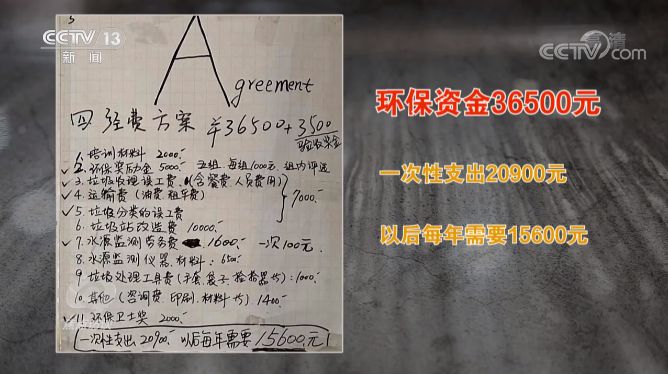 CCTV 13
新闻
高清
CCTV.com
5
Agreement
四 经费方案 ¥36500+3500
验收奖金
1. 培训材料 2000.-
✓2. 环保奖励金 5000.- 五组, 每组1000元, 组内评选
✓3. 垃圾收理误工费. (含餐费, 人员费用)
✓4. 运输费 (油费, 租车费)
7000.-
✓5. 垃圾分类的误工费
6. 垃圾站改造费 10000.-
✓7. 水源监测劳务费 1600.- 一次100元.
8. 水源监测仪器, 材料: 6500.-
9. 垃圾处理工具费 (手套, 袋子, 捡拾器等): 1000.-
10. 其他 (咨询费, 印刷, 材料等). 1400.-
✓11. 环保卫士奖 2000.-
一次性支出20900.- 以后每年需要15600.元
环保资金36500元
一次性支出20900元
以后每年需要15600元